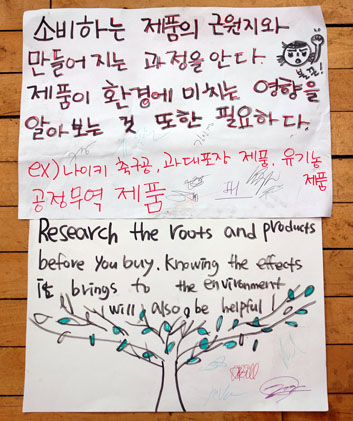 소비하는 제품의 근원지와
만들어 지는 과정을 안다.
제품이 환경에 미치는 영향을
알아보는 것 또한 필요하다.
ex) 나이키 축구공, 과대포장 제품, 유기농 제품
공정무역 제품
Research the roots and products
before you buy. Knowing the effects
it brings to the environment
will also be helpful!